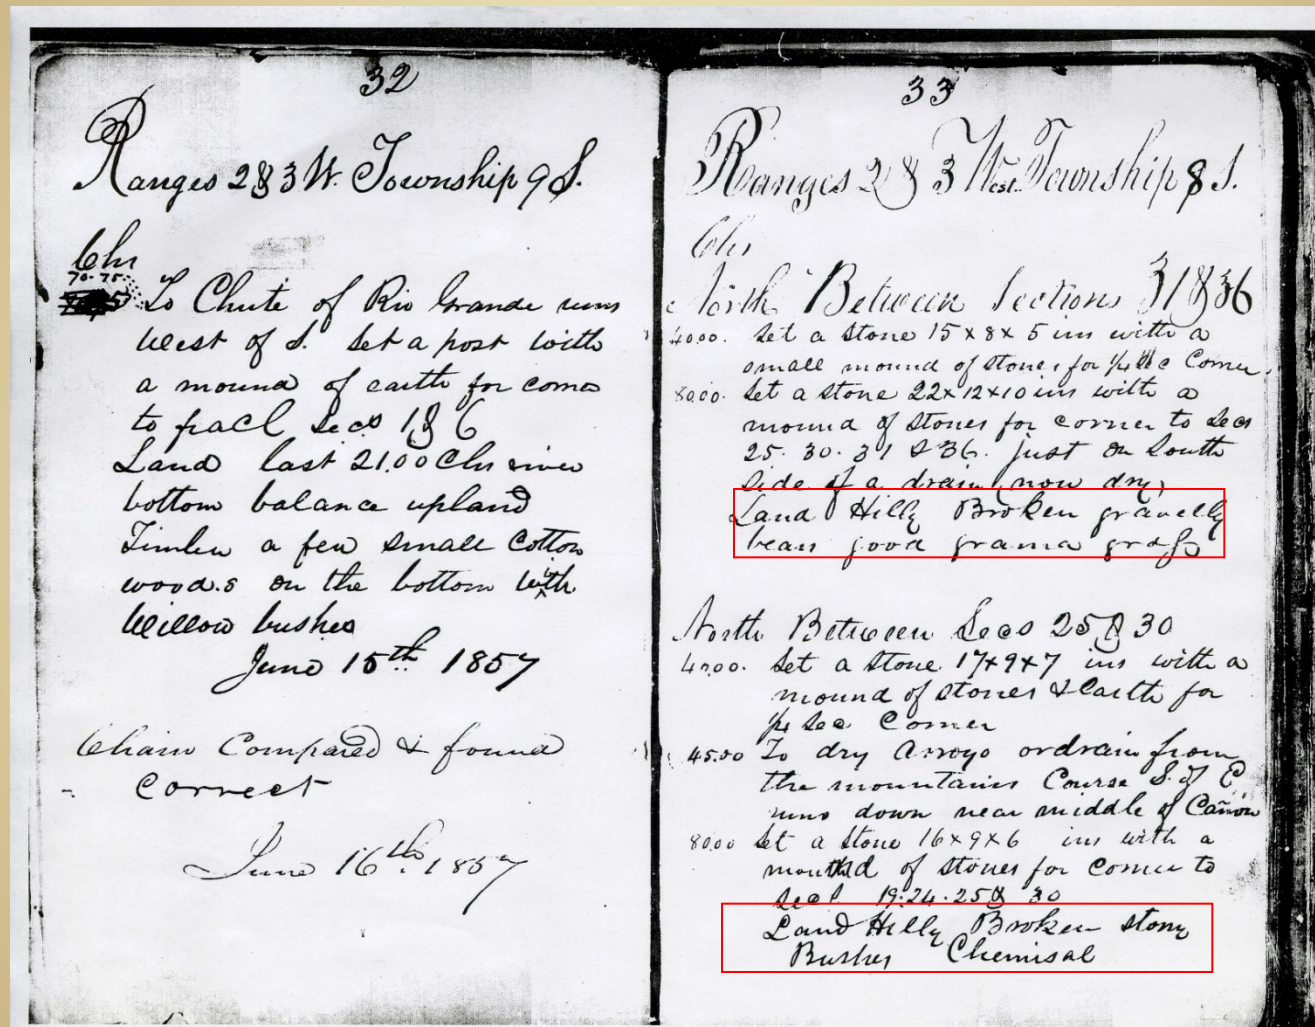 32
Ranges 2 & 3 W. Township 9 S.
Chs
70.75
To Chute of Rio Grande runs
West of S. Set a post with
a mound of earth for corner
to fracl Secs 1 & 6
Land last 21.00 Chs river
bottom balance upland
Timber a few small Cotton
woods on the bottom with
Willow bushes
June 15th 1857
Chain Compared & found
Correct
June 16th 1857
33
Ranges 2 & 3 West Township 8 S.
Chs
North Between Sections 31 & 36
40.00. Set a Stone 15 x 8 x 5 ins with a
small mound of stones for 1/4 Sec Corner
80.00. Set a Stone 22 x 12 x 10 ins with a
mound of stones for corner to Secs
25. 30. 31 & 36. just on South
Side of a drain (now dry)
Land Hilly Broken gravelly
bears good grama grass
North Between Secs 25 & 30
40.00. Set a Stone 17 x 9 x 7 ins with a
mound of stones & Earth for
1/4 Sec Corner
45.00 To dry Arroyo or drain from
the mountains Course S. of E
runs down near middle of Cañon
80.00 Set a Stone 16 x 9 x 6 ins with a
mound of stones for Corner to
Secs 19. 24. 25 & 30
Land Hilly Broken stony
Bushes Chemisal